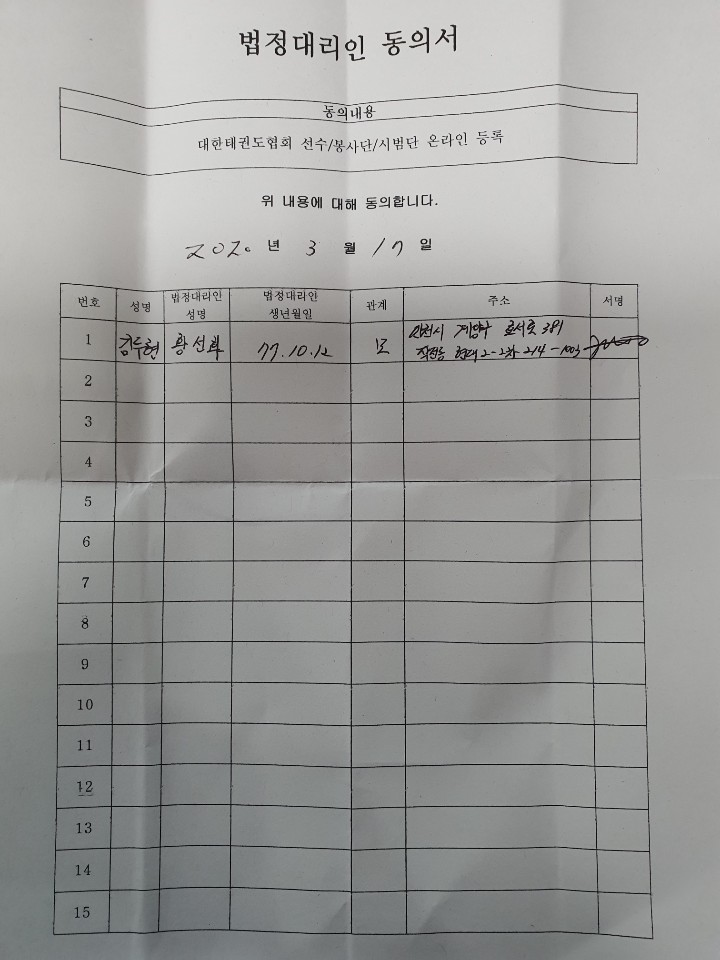 법정대리인 동의서
동의내용
대한태권도협회 선수/봉사단/시범단 온라인 등록
위 내용에 대해 동의합니다.
2020 년 3 월 17 일
번호 성명 법정대리인 성명 법정대리인 생년월일 관계 주소 서명
1 김두현 황선희 77.10.12 모 인천시 계양구 로서로 381
작전동 현대2-2차 214-1003
2
3
4
5
6
7
8
9
10
11
12
13
14
15